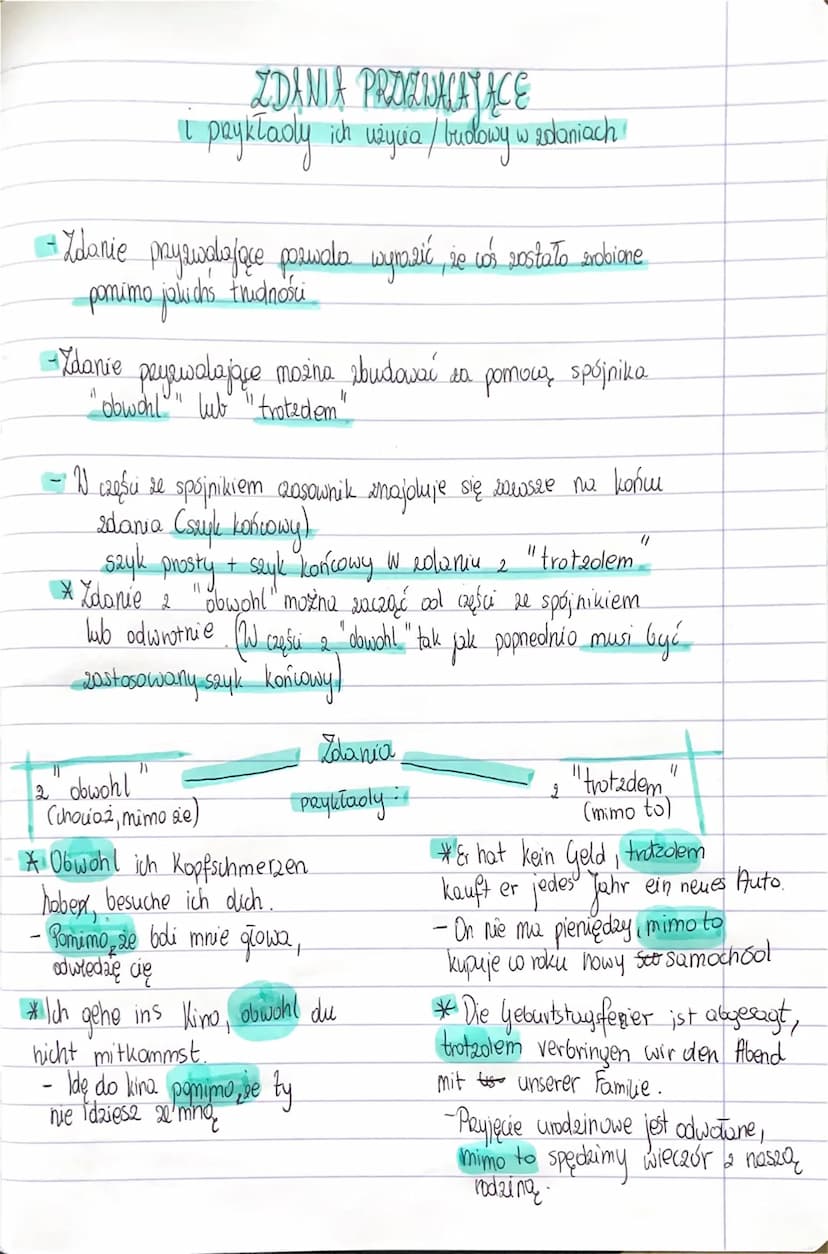 ZDANIA PRZYZWALAJĄCE
i przykłady ich użycia / budowy w zdaniach
- Zdanie przyzwalające pozwala wyrazić, że coś zostało zrobione
pomimo jakichś trudności
- Zdanie przyzwalające można zbudować za pomocą spójnika
"obwohl" lub "trotzdem"
- W części ze spójnikiem czasownik znajduje się zawsze na końcu
zdania (szyk końcowy)
szyk prosty + szyk końcowy w zdaniu z "trotzdem"
* Zdanie z "obwohl" można zacząć od części ze spójnikiem
lub odwrotnie. (W części z "obwohl" tak jak poprzednio musi być
zastosowany szyk końcowy)
Zdania
przykłady:
z "obwohl"
(chociaż, mimo że)
* Obwohl ich Kopfschmerzen
haben, besuche ich dich.
- Pomimo, że boli mnie głowa,
odwiedzę cię
* Ich gehe ins Kino, obwohl du
nicht mitkommst.
- Idę do kina pomimo, że ty
nie idziesz ze mną
z "trotzdem"
(mimo to)
* Er hat kein Geld, trotzdem
kauft er jedes Jahr ein neues Auto.
- On nie ma pieniędzy, mimo to
kupuje co roku nowy samochód
* Die Geburtstagsfeier ist abgesagt,
trotzdem verbringen wir den Abend
mit unserer Familie.
- Przyjęcie urodzinowe jest odwołane,
mimo to spędzimy wieczór z naszą
rodziną.